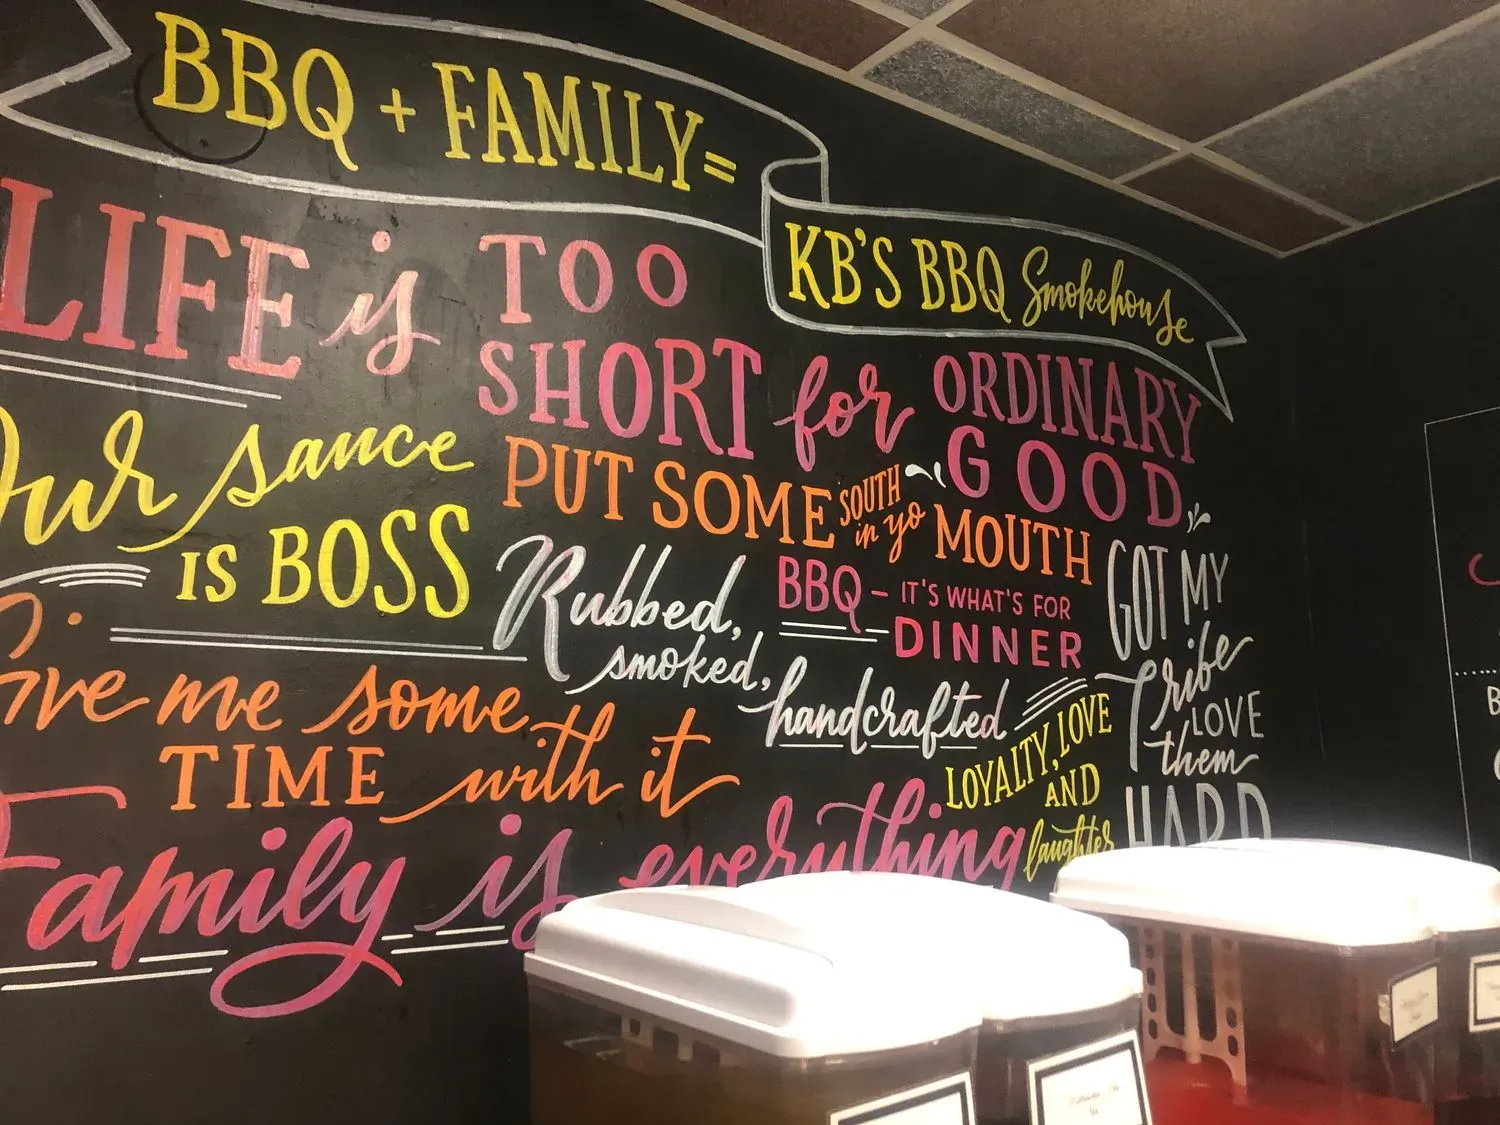 BBQ + FAMILY =
KB'S BBQ Smokehouse
LIFE is TOO
SHORT for ORDINARY
GOOD
Our sauce
IS BOSS
PUT SOME SOUTH
in yo MOUTH
Rubbed,
smoked,
handcrafted
BBQ - IT'S WHAT'S FOR
DINNER
GOT MY
Tribe
LOVE
them
HARD
Give me some
TIME with it
LOYALTY, LOVE
AND
laughter
Family is everything